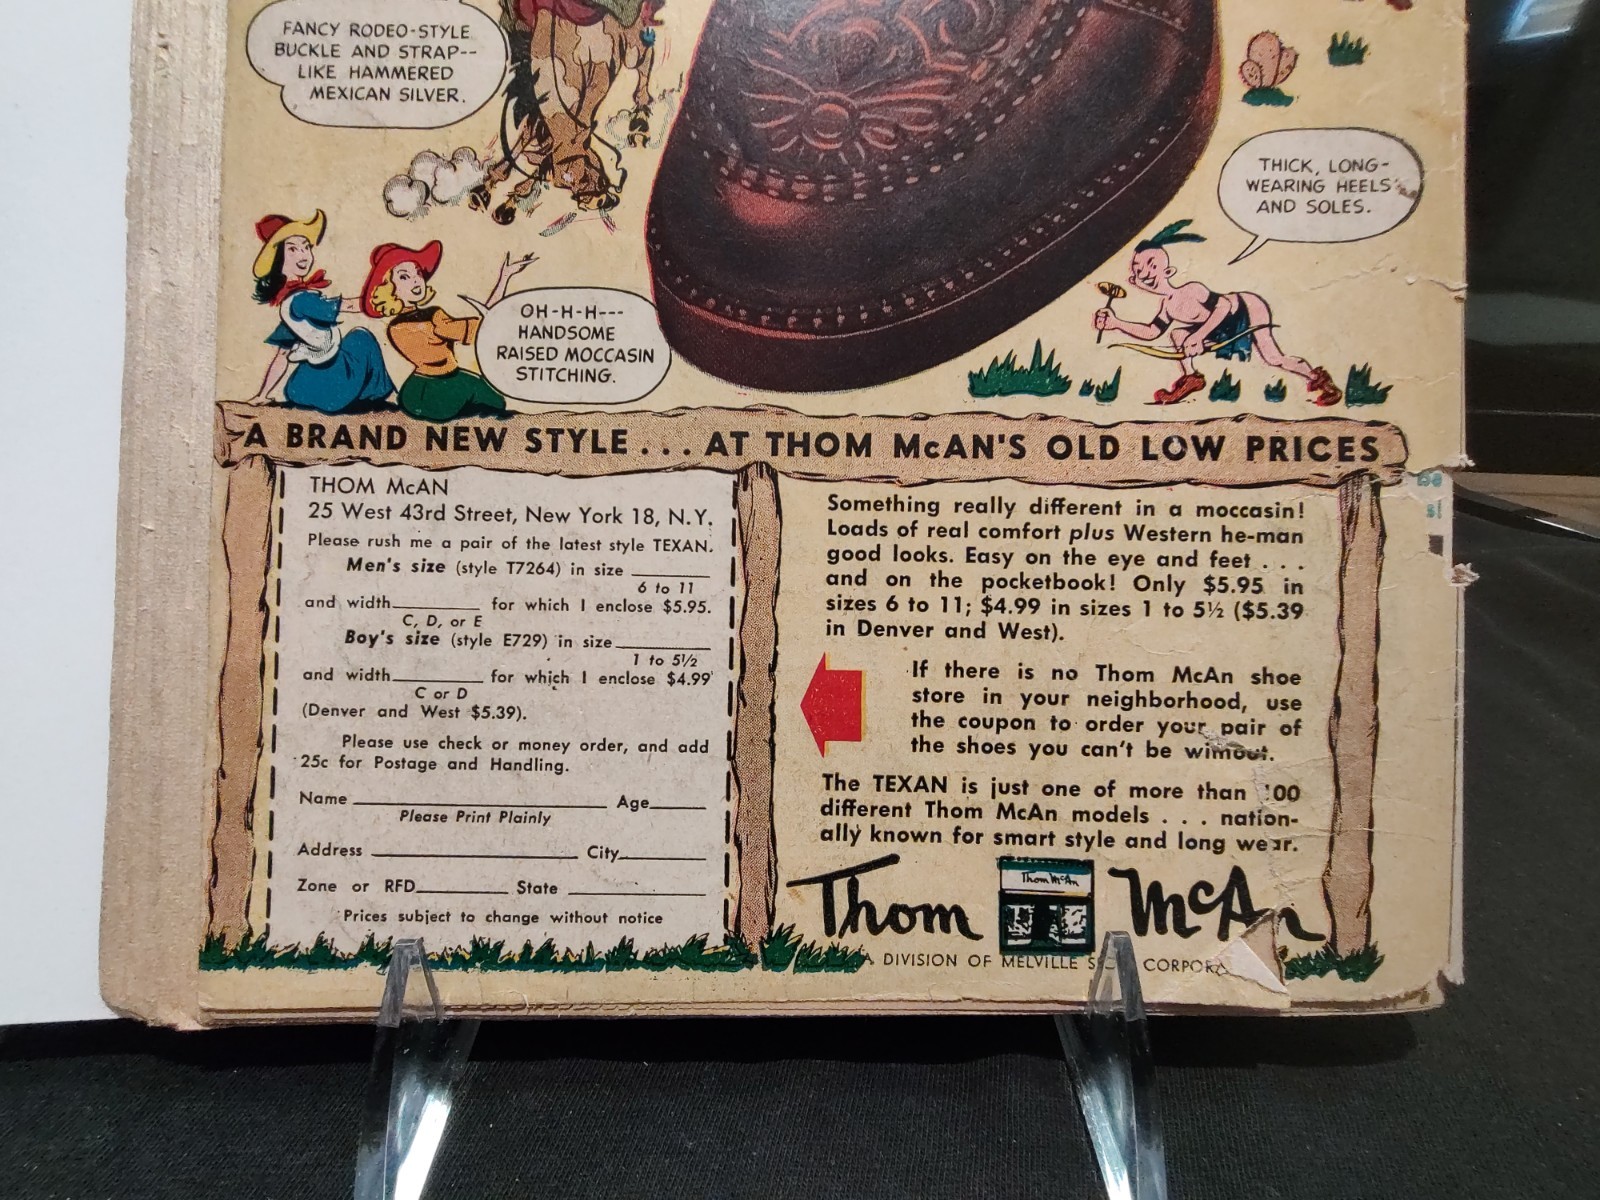 FANCY RODEO-STYLE
BUCKLE AND STRAP--
LIKE HAMMERED
MEXICAN SILVER.
THICK, LONG-
WEARING HEELS
AND SOLES.
OH-H-H---
HANDSOME
RAISED MOCCASIN
STITCHING.
A BRAND NEW STYLE... AT THOM McAN'S OLD LOW PRICES
THOM McAN
25 West 43rd Street, New York 18, N.Y.
Please rush me a pair of the latest style TEXAN.
Men's size (style T7264) in size ________
6 to 11
and width________ for which I enclose $5.95.
C, D, or E
Boy's size (style E729) in size________
1 to 5½
and width________ for which I enclose $4.99
C or D
(Denver and West $5.39).
Please use check or money order, and add
25c for Postage and Handling.
Name ________ Age________
Please Print Plainly
Address ________ City________
Zone or RFD________ State ________
Prices subject to change without notice
Something really different in a moccasin!
Loads of real comfort plus Western he-man
good looks. Easy on the eye and feet . . .
and on the pocketbook! Only $5.95 in
sizes 6 to 11; $4.99 in sizes 1 to 5½ ($5.39
in Denver and West).
If there is no Thom McAn shoe
store in your neighborhood, use
the coupon to order your pair of
the shoes you can't be without.
The TEXAN is just one of more than 00
different Thom McAn models . . . nation-
ally known for smart style and long wear.
Thom McAn
Thom McAn
A DIVISION OF MELVILLE CORPORA